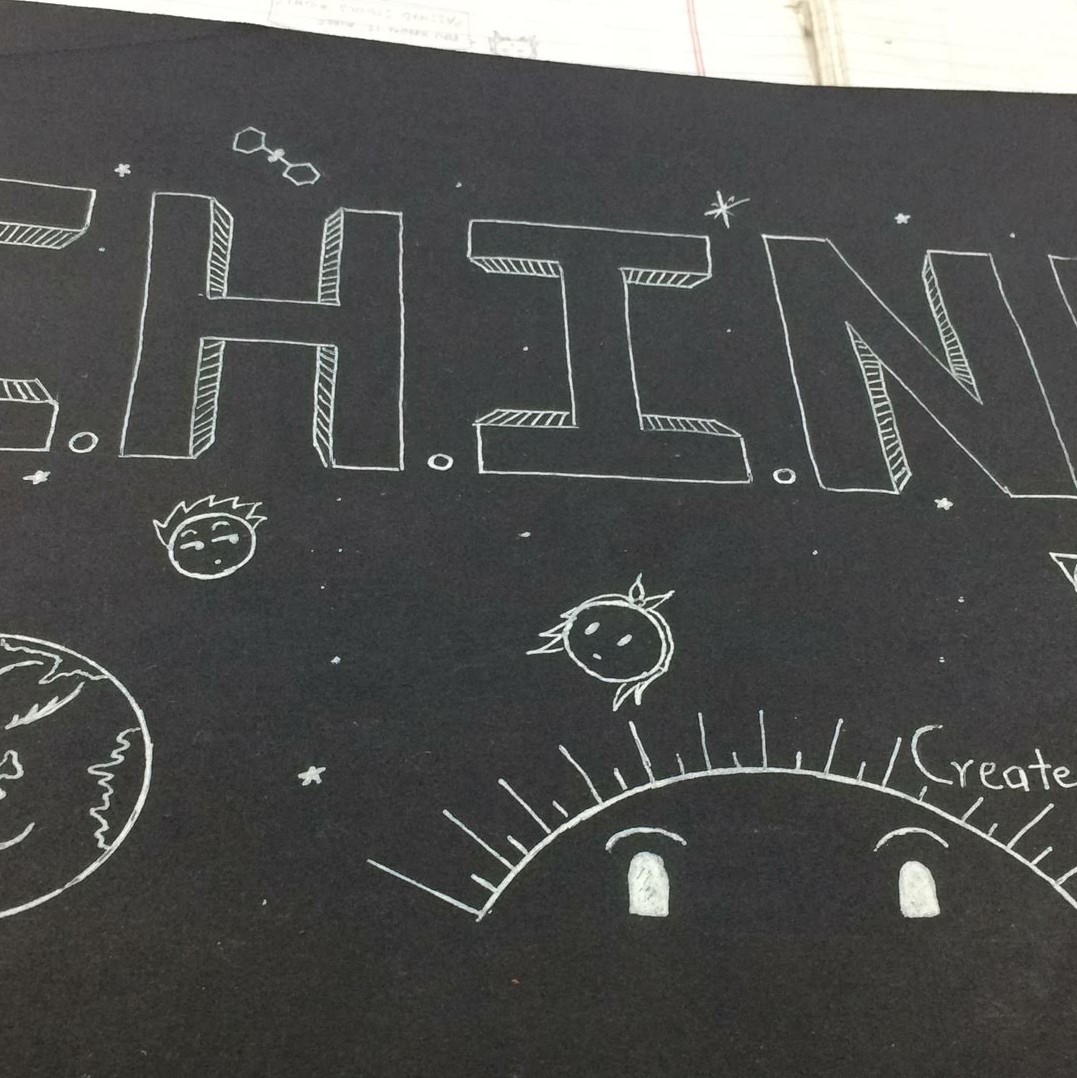 .H.I.N
Create